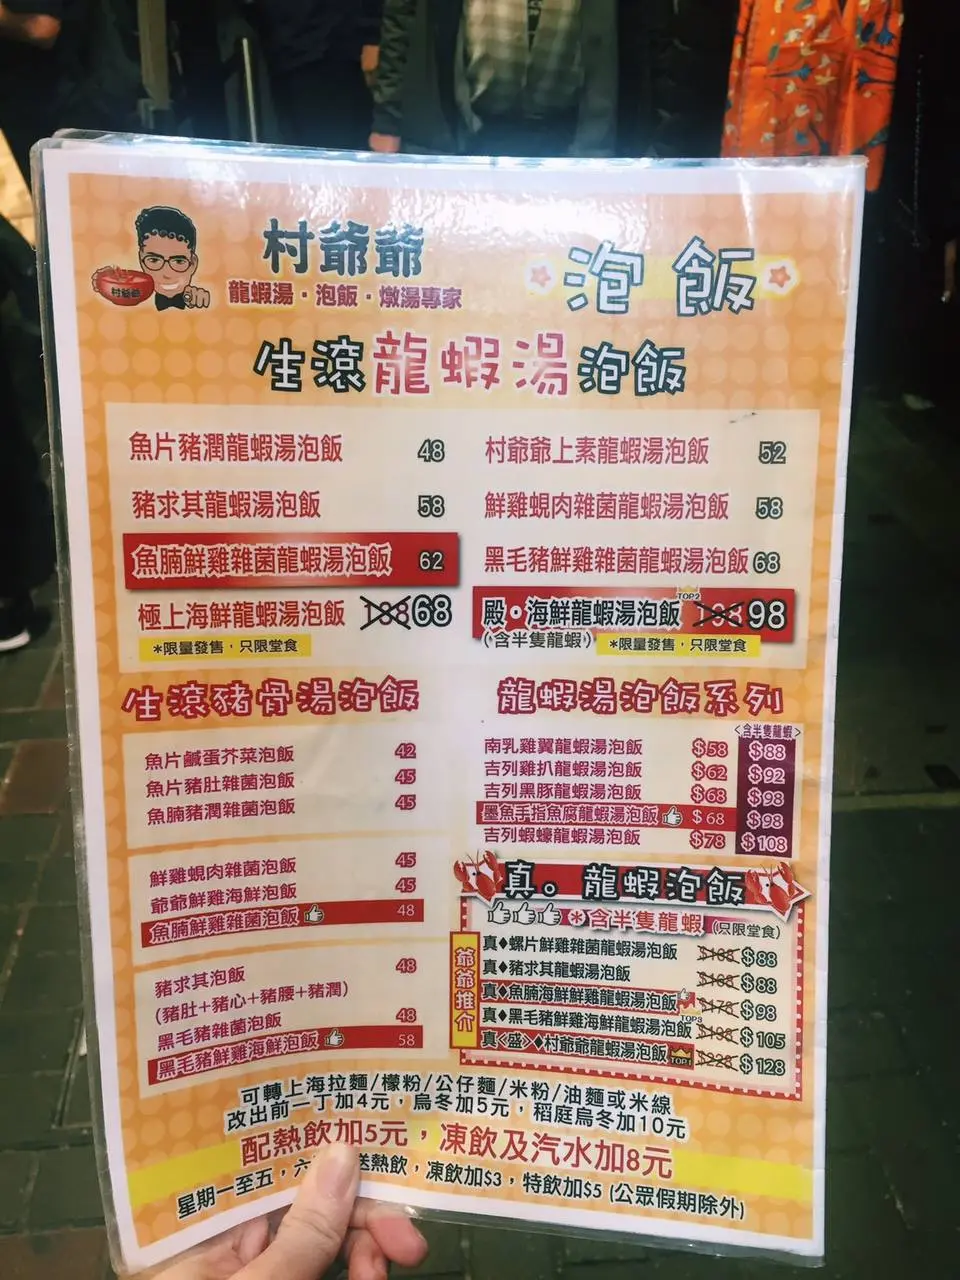 村爺爺
村爺爺
龍蝦湯·泡飯·燉湯專家
泡飯
生滾龍蝦湯泡飯
魚片豬潤龍蝦湯泡飯 48
豬求其龍蝦湯泡飯 58
魚腩鮮雞雜菌龍蝦湯泡飯 62
極上海鮮龍蝦湯泡飯 68
*限量發售，只限堂食
村爺爺上素龍蝦湯泡飯 52
鮮雞蜆肉雜菌龍蝦湯泡飯 58
黑毛豬鮮雞雜菌龍蝦湯泡飯 68
TOP2
殿·海鮮龍蝦湯泡飯 98
(含半隻龍蝦) *限量發售，只限堂食
生滾豬骨湯泡飯
魚片鹹蛋芥菜泡飯 42
魚片豬肚雜菌泡飯 45
魚腩豬潤雜菌泡飯 45
鮮雞蜆肉雜菌泡飯 45
爺爺鮮雞海鮮泡飯 45
魚腩鮮雞雜菌泡飯 48
豬求其泡飯 48
(豬肚+豬心+豬腰+豬潤)
黑毛豬雜菌泡飯 48
黑毛豬鮮雞海鮮泡飯 58
龍蝦湯泡飯系列
<含半隻龍蝦>
南乳雞翼龍蝦湯泡飯 $58 $88
吉列雞扒龍蝦湯泡飯 $62 $92
吉列黑豚龍蝦湯泡飯 $68 $98
墨魚手指魚腐龍蝦湯泡飯 $68 $98
吉列蝦蠔龍蝦湯泡飯 $78 $108
真。龍蝦泡飯
*含半隻龍蝦 (只限堂食)
爺爺推介
真♦螺片鮮雞雜菌龍蝦湯泡飯 $88
真♦豬求其龍蝦湯泡飯 $168 $88
真♦魚腩海鮮鮮雞龍蝦湯泡飯 $178 $98
TOP3
真♦黑毛豬鮮雞海鮮龍蝦湯泡飯 $198 $105
真<盛>♦村爺爺龍蝦湯泡飯 TOP1 $228 $128
可轉上海拉麵/檬粉/公仔麵/米粉/油麵或米線
改出前一丁加4元，烏冬加5元，稻庭烏冬加10元
配熱飲加5元，凍飲及汽水加8元
星期一至五，六 送熱飲，凍飲加$3，特飲加$5 (公眾假期除外)